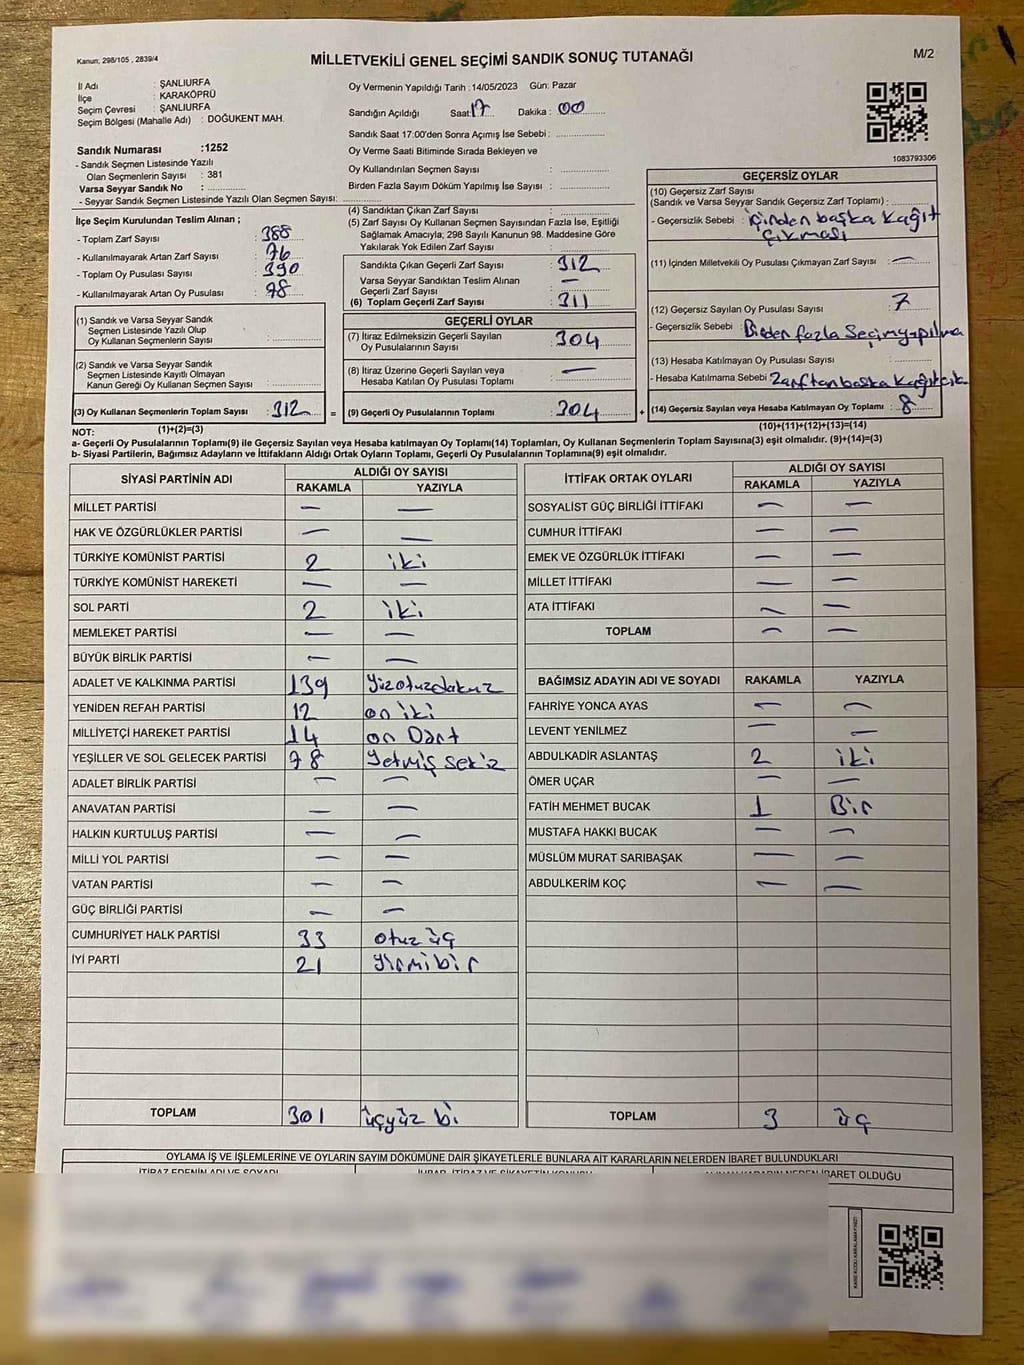 Kanun; 298/105 , 2839/4
MİLLETVEKİLİ GENEL SEÇİMİ SANDIK SONUÇ TUTANAĞI
M/2
İl Adı : ŞANLIURFA
İlçe : KARAKÖPRÜ
Seçim Çevresi : ŞANLIURFA
Seçim Bölgesi (Mahalle Adı) : DOĞUKENT MAH.
Sandık Numarası :1252
- Sandık Seçmen Listesinde Yazılı
Olan Seçmenlerin Sayısı : 381
Varsa Seyyar Sandık No :
- Seyyar Sandık Seçmen Listesinde Yazılı Olan Seçmenlerin Sayısı:
Oy Vermenin Yapıldığı Tarih :14/05/2023 Gün: Pazar
Sandığın Açıldığı Saat: 17 Dakika : 00
Sandık Saat 17:00'den Sonra Açımış İse Sebebi :
Oy Verme Saati Bitiminde Sırada Bekleyen ve
Oy Kullandırılan Seçmen Sayısı :
Birden Fazla Sayım Döküm Yapılmış İse Sayısı :
1083793306
İlçe Seçim Kurulundan Teslim Alınan ;
- Toplam Zarf Sayısı : 388
- Kullanılmayarak Artan Zarf Sayısı : 76
- Toplam Oy Pusulası Sayısı : 390
- Kullanılmayarak Artan Oy Pusulası : 78
(1) Sandık ve Varsa Seyyar Sandık
Seçmen Listesinde Yazılı Olup
Oy Kullanan Seçmenlerin Sayısı :
(2) Sandık ve Varsa Seyyar Sandık
Seçmen Listesinde Kayıtlı Olmayan
Kanun Gereği Oy Kullanan Seçmen Sayısı :
(3) Oy Kullanan Seçmenlerin Toplam Sayısı : 312 =
(1)+(2)=(3)
(4) Sandıktan Çıkan Zarf Sayısı :
(5) Zarf Sayısı Oy Kullanan Seçmen Sayısından Fazla İse, Eşitliği
Sağlamak Amacıyla, 298 Sayılı Kanunun 98. Maddesine Göre
Yakılarak Yok Edilen Zarf Sayısı :
Sandıkta Çıkan Geçerli Zarf Sayısı : 312
Varsa Seyyar Sandıktan Teslim Alınan
Geçerli Zarf Sayısı : —
(6) Toplam Geçerli Zarf Sayısı : 311
GEÇERLİ OYLAR
(7) İtiraz Edilmeksizin Geçerli Sayılan
Oy Pusulalarının Sayısı : 304
(8) İtiraz Üzerine Geçerli Sayılan veya
Hesaba Katılan Oy Pusulası Toplamı : —
(9) Geçerli Oy Pusulalarının Toplamı : 304 +
GEÇERSİZ OYLAR
(10) Geçersiz Zarf Sayısı
(Sandık ve Varsa Seyyar Sandık Geçersiz Zarf Toplamı) :
- Geçersizlik Sebebi : içinden başka kağıt
çıkması
(11) İçinden Milletvekili Oy Pusulası Çıkmayan Zarf Sayısı : —
(12) Geçersiz Sayılan Oy Pusulası Sayısı : 7
- Geçersizlik Sebebi : Birden fazla Seçim yapılma
(13) Hesaba Katılmayan Oy Pusulası Sayısı :
- Hesaba Katılmama Sebebi : Zarftan başka kağıt çık
(14) Geçersiz Sayılan veya Hesaba Katılmayan Oy Toplamı : 8
(10)+(11)+(12)+(13)=(14)
NOT:
a- Geçerli Oy Pusulalarının Toplamı(9) ile Geçersiz Sayılan veya Hesaba katılmayan Oy Toplamı(14) Toplamları, Oy Kullanan Seçmenlerin Toplam Sayısına(3) eşit olmalıdır. (9)+(14)=(3)
b- Siyasi Partilerin, Bağımsız Adayların ve İttifakların Aldığı Ortak Oyların Toplamı, Geçerli Oy Pusulalarının Toplamına(9) eşit olmalıdır.
SİYASİ PARTİNİN ADI ALDIĞI OY SAYISI
RAKAMLA YAZIYLA
MİLLET PARTİSİ — —
HAK VE ÖZGÜRLÜKLER PARTİSİ — —
TÜRKİYE KOMÜNİST PARTİSİ 2 iki
TÜRKİYE KOMÜNİST HAREKETİ — —
SOL PARTİ 2 iki
MEMLEKET PARTİSİ — —
BÜYÜK BİRLİK PARTİSİ — —
ADALET VE KALKINMA PARTİSİ 139 Yüzotuzdokuz
YENİDEN REFAH PARTİSİ 12 on iki
MİLLİYETÇİ HAREKET PARTİSİ 14 on Dört
YEŞİLLER VE SOL GELECEK PARTİSİ 78 Yetmiş sekiz
ADALET BİRLİK PARTİSİ — —
ANAVATAN PARTİSİ — —
HALKIN KURTULUŞ PARTİSİ — —
MİLLİ YOL PARTİSİ — —
VATAN PARTİSİ — —
GÜÇ BİRLİĞİ PARTİSİ — —
CUMHURİYET HALK PARTİSİ 33 otuz üç
İYİ PARTİ 21 Yirmibir
TOPLAM 301 üçyüz bi
İTTİFAK ORTAK OYLARI ALDIĞI OY SAYISI
RAKAMLA YAZIYLA
SOSYALİST GÜÇ BİRLİĞİ İTTİFAKI — —
CUMHUR İTTİFAKI — —
EMEK VE ÖZGÜRLÜK İTTİFAKI — —
MİLLET İTTİFAKI — —
ATA İTTİFAKI — —
TOPLAM — —
BAĞIMSIZ ADAYIN ADI VE SOYADI RAKAMLA YAZIYLA
FAHRİYE YONCA AYAS — —
LEVENT YENİLMEZ — —
ABDULKADİR ASLANTAŞ 2 iki
ÖMER UÇAR — —
FATİH MEHMET BUCAK 1 Bir
MUSTAFA HAKKI BUCAK — —
MÜSLÜM MURAT SARIBAŞAK — —
ABDULKERİM KOÇ — —
TOPLAM 3 üç
OYLAMA İŞ VE İŞLEMLERİNE VE OYLARIN SAYIM DÖKÜMÜNE DAİR ŞİKAYETLERLE BUNLARA AİT KARARLARIN NELERDEN İBARET BULUNDUKLARI
İTİRAZ EDENİN ADI VE SOYADI